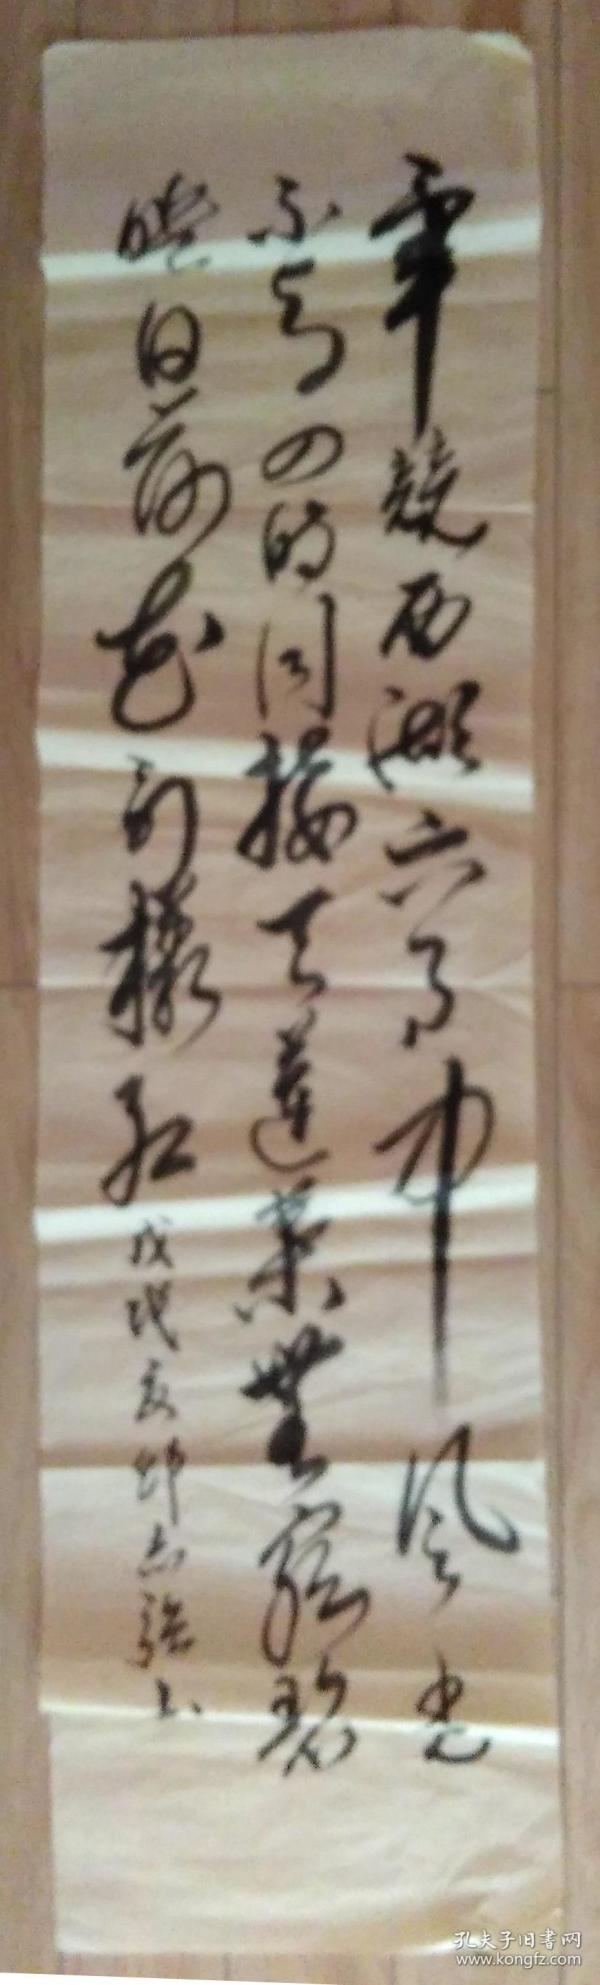 畢竟西湖六月中风光
不与四时同接天蓮葉無窮碧
暎日荷花别樣红 戊戌夏 志強书
孔夫子旧书网
www.kongfz.com